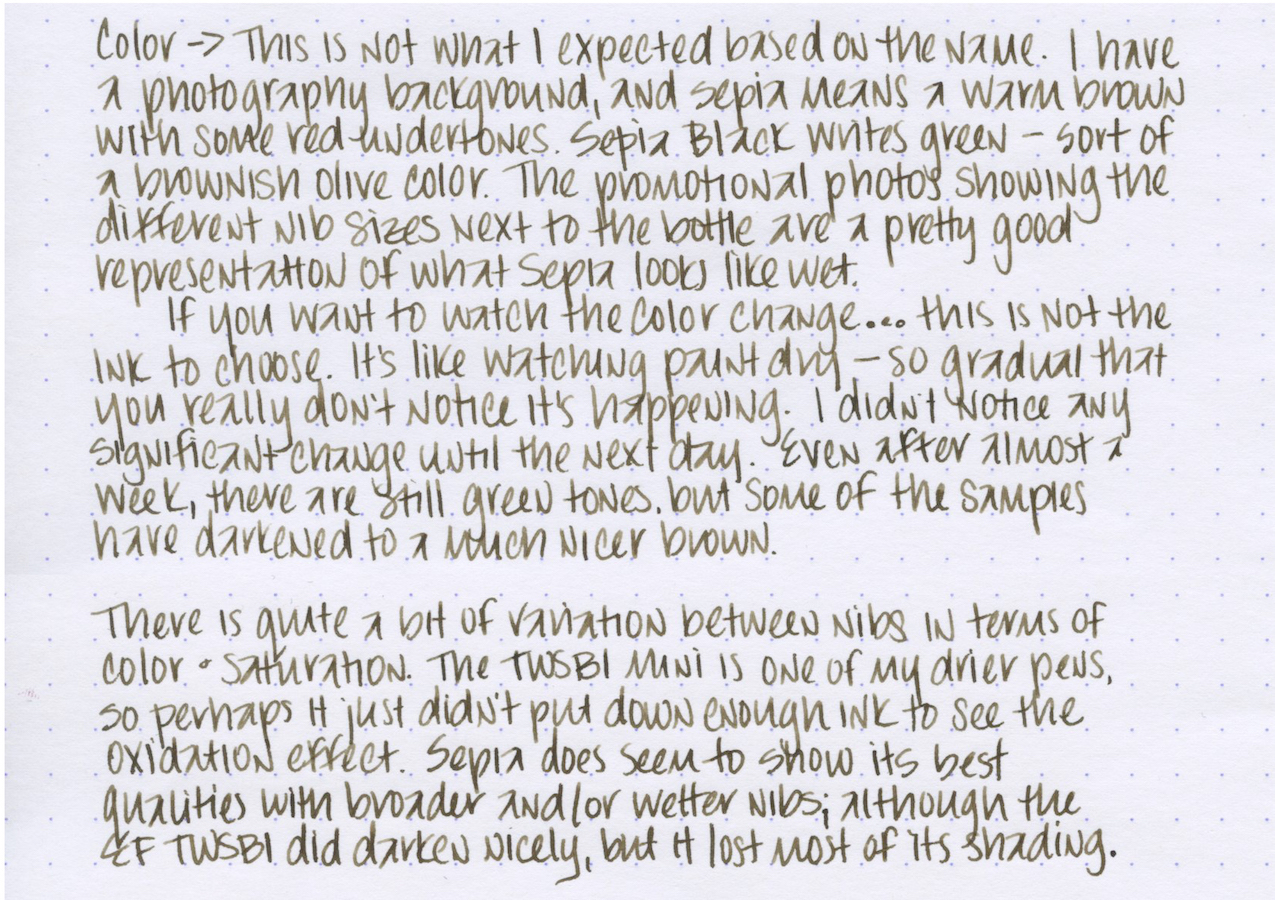 Color -> This is not what I expected based on the name. I have
a photography background, and sepia means a warm brown
with some red undertones. Sepia Black writes green - sort of
a brownish olive color. The promotional photos showing the
different nib sizes next to the bottle are a pretty good
representation of what Sepia looks like wet.
If you want to watch the color change... this is not the
ink to choose. It's like watching paint dry - so gradual that
you really don't notice it's happening. I didn't notice any
significant change until the next day. Even after almost a
week, there are still green tones. but some of the samples
have darkened to a much nicer brown.
There is quite a bit of variation between nibs in terms of
color • saturation. The TWSBI Mini is one of my drier pens,
so perhaps it just didn't put down enough ink to see the
oxidation effect. Sepia does seem to show its best
qualities with broader and/or wetter nibs; although the
EF TWSBI did darken nicely, but it lost most of its shading.